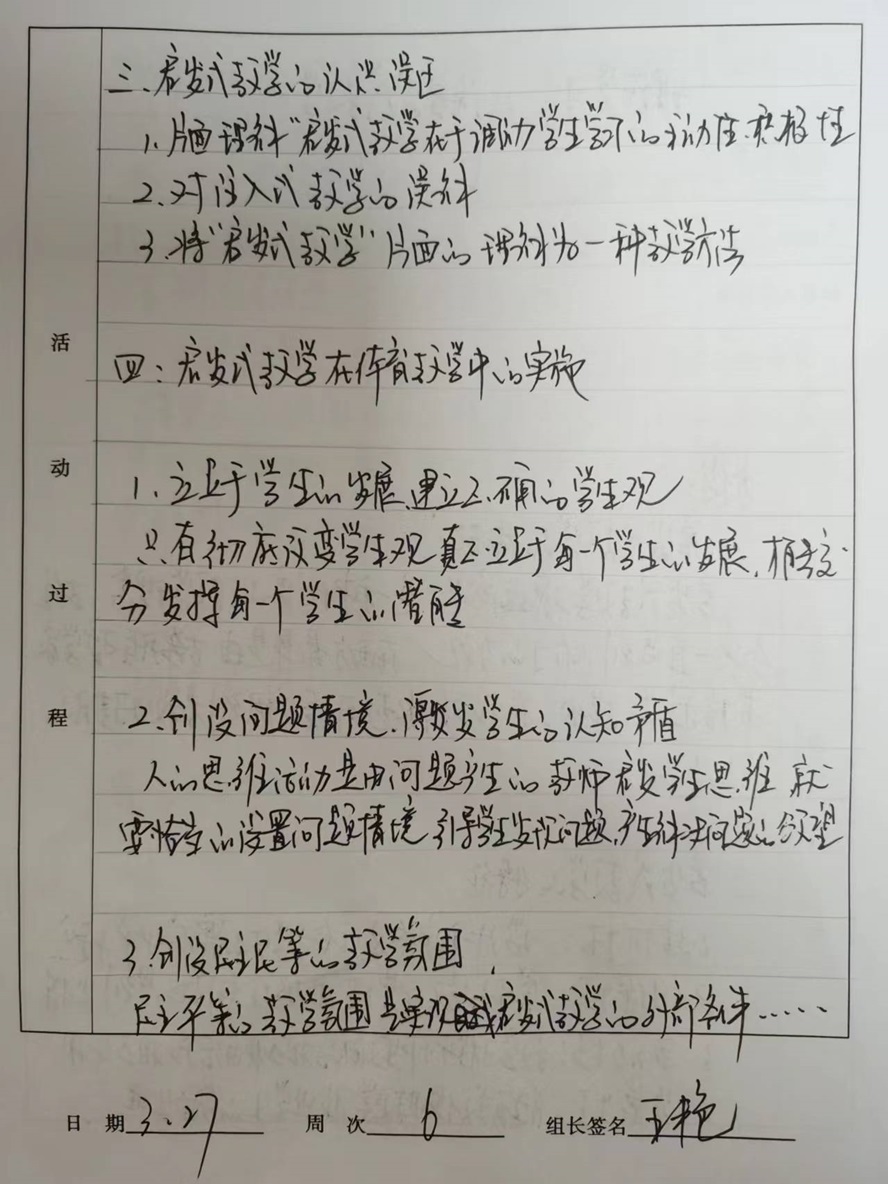 三、启发式教学的认识误区
1、片面理解“启发式教学在于调动学生学习的主动性、积极性
2、对注入式教学的误解
3、将“启发式教学”片面的理解为一种教学方法
四：启发式教学在体育教学中的实施
1、立足于学生的发展、建立正确的学生观
只有彻底改变学生观真正立足于每一个学生的发展，相
分发挥每一个学生的潜能
2、创设问题情境、激发学生的认知矛盾
人的思维活动是由问题产生的教师启发学生思维就
要恰当的设置问题情境引导学生发现问题，产生解决问题的欲望
3、创设民主民等的教学氛围
民主平等的教学氛围是实现启发式教学的外部条件……
活动过程
日 期 3.27 周 次 6 组长签名 王艳